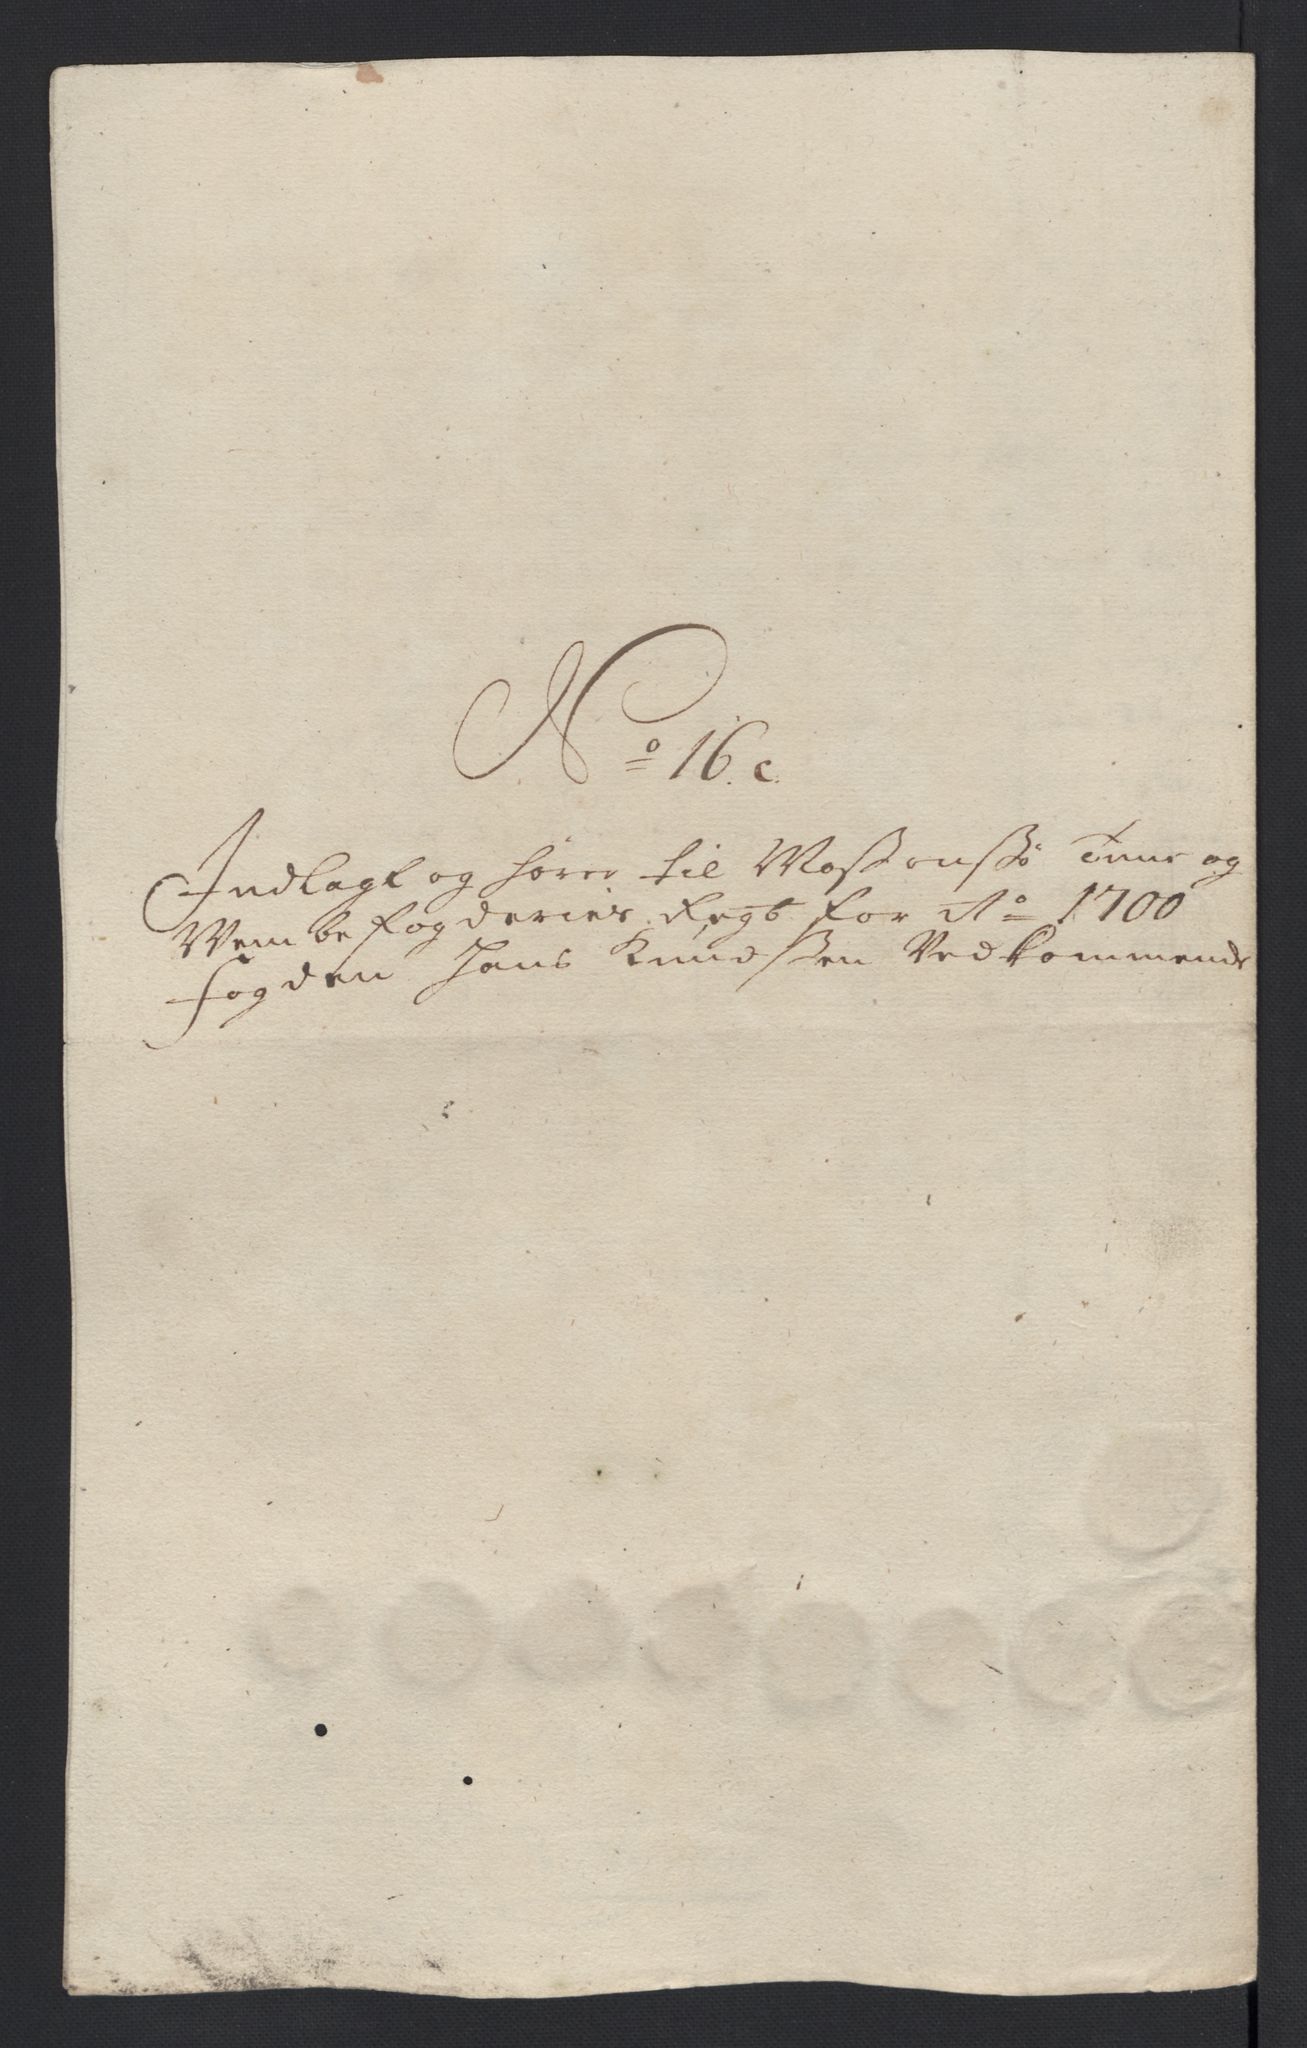 No 16. c.
Indlagt og hører til Moss onssø Tune og
Wembe fogderies Regb for Ao 1700
fogden Hans Knudssen Vedkommende